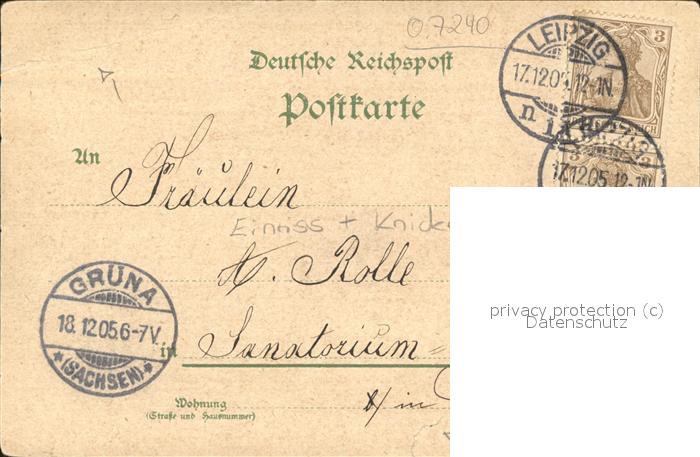 0.7240
Deutsche Reichspost
Postkarte
LEIPZIG
17.12.05.12-1N.
3
17.12.05.12-1N
An
Fräulein
Einriss + Knick
A. Rolle
GRÜNA
18.12.05.6-7V.
(SACHSEN)
in Sanatorium
Wohnung
(Straße und Hausnummer)
in
privacy protection (c)
Datenschutz